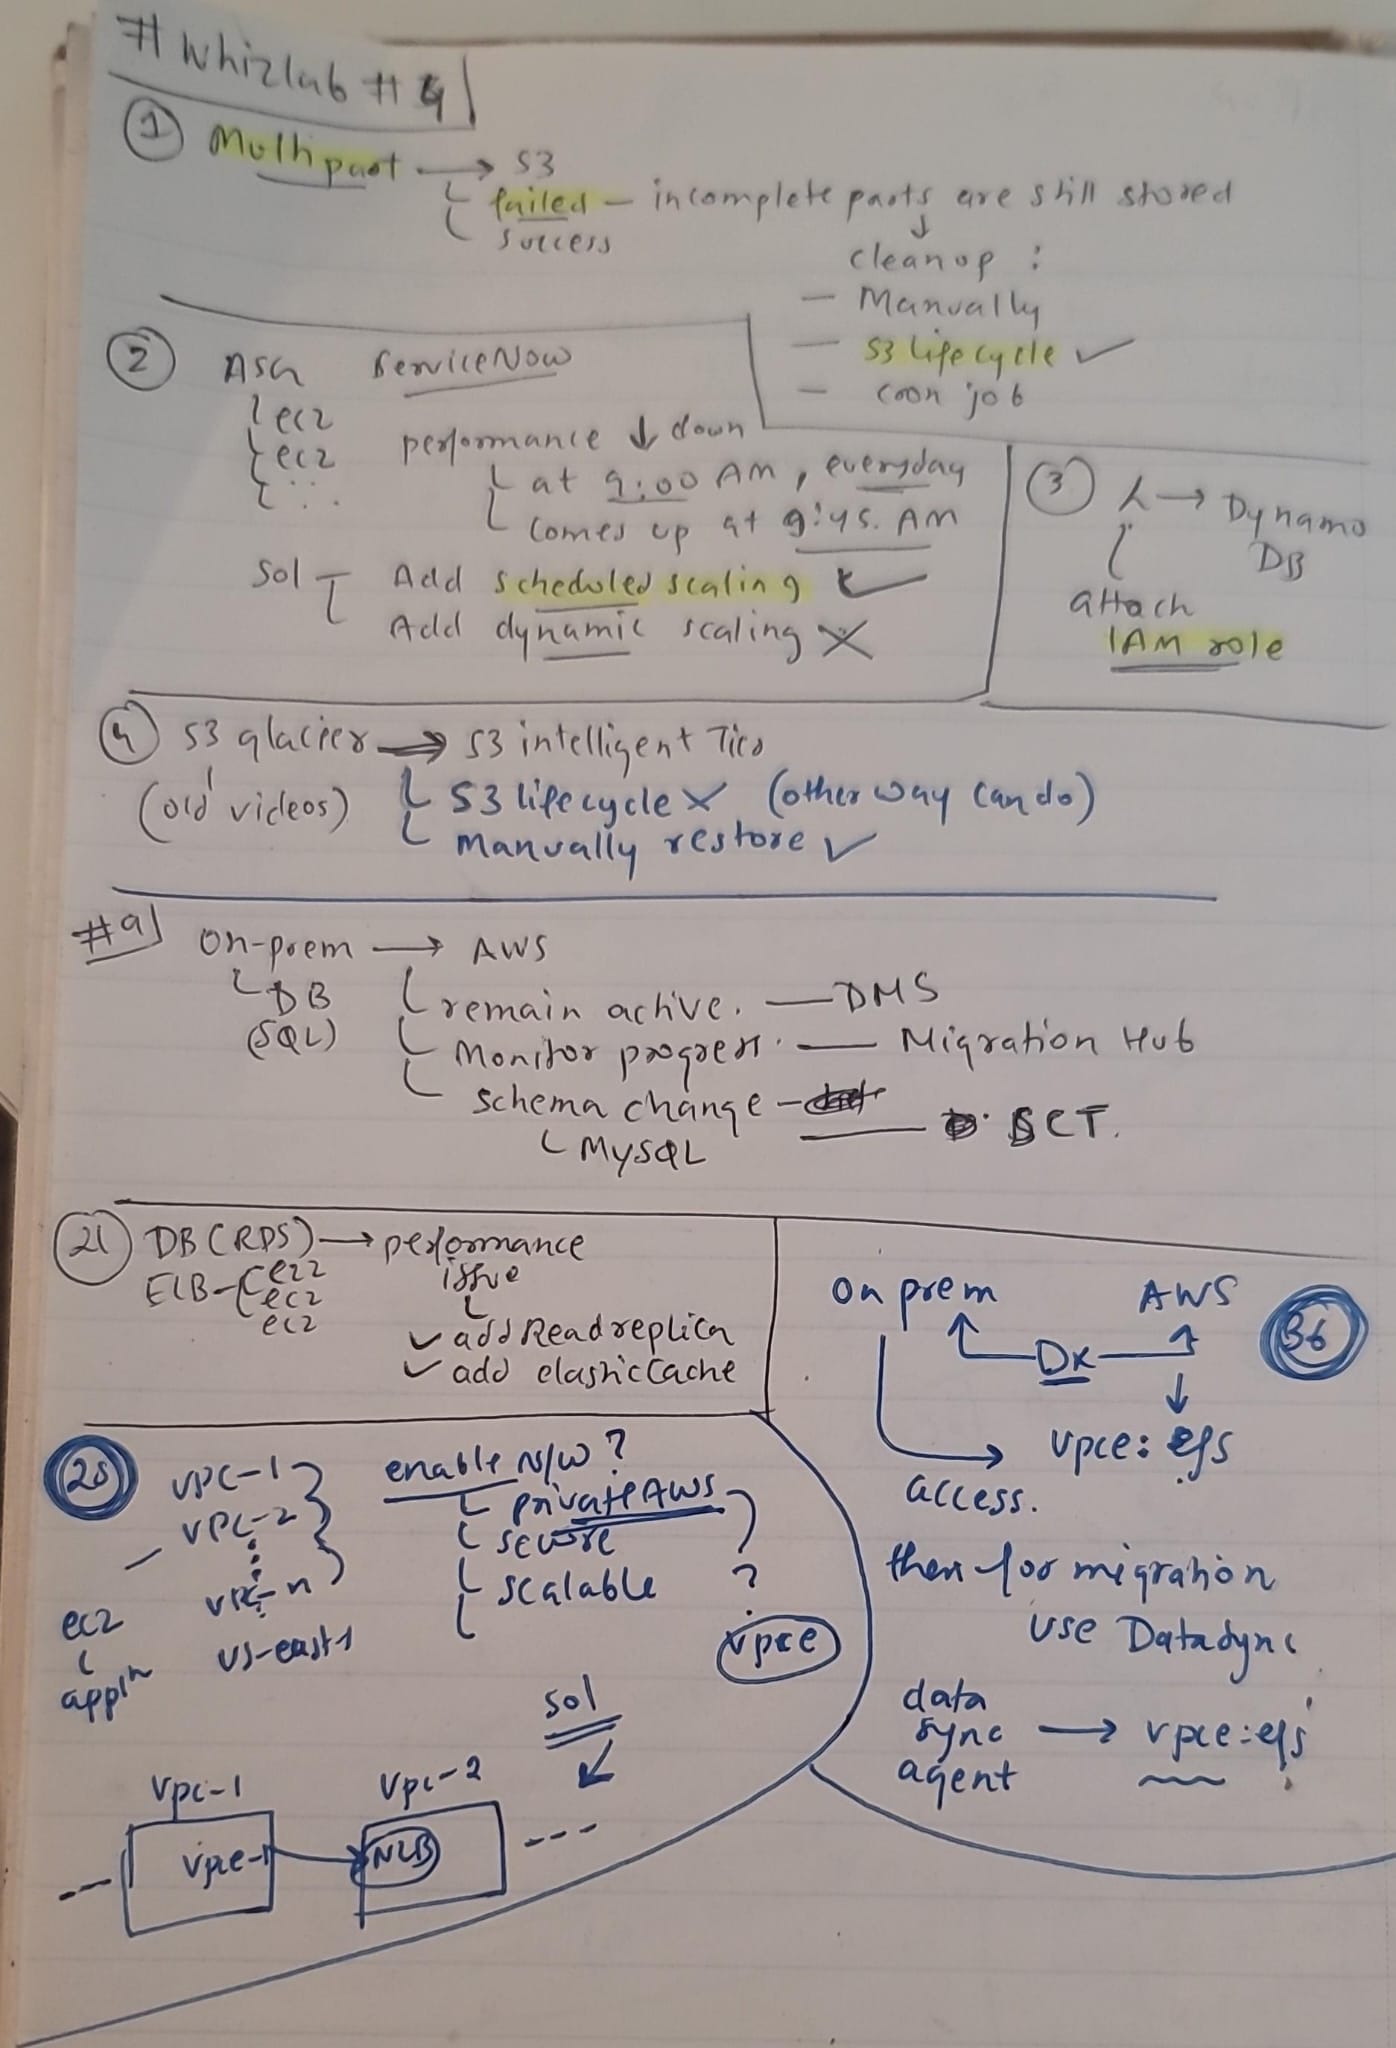 # Whizlab # 4
① Multipart → S3
failed – incomplete parts are still stored
success
cleanup :
– Manually
– S3 lifecycle ✓
– cron job
② ASG ServiceNow
ec2
ec2 performance ↓ down
... at 9:00 AM, everyday
comes up at 9:45. AM
Sol Add scheduled scaling ✓
Add dynamic scaling ✗
③ λ → Dynamo
DB
attach
IAM role
④ S3 glacier → S3 intelligent Tier
(old videos) S3 lifecycle ✗ (other way can do)
manually restore ✓
#9 On-prem → AWS
DB remain active. — DMS
(SQL) Monitor progress. — Migration Hub
schema change — SCT.
MySQL
21 DB (RDS) → performance
issue
ELB - ec2
ec2
ec2
✓ add Read replica
✓ add elasticCache
36
On prem AWS
Dx
vpce: efs
access.
then for migration
use Datasync
data
sync → vpce:efs
agent
vpc-1 enable N/W ?
vpc-2 private AWS
secure ?
vpc-n scalable ?
us-east1 vpce
ec2
appln
sol
vpc-1 vpc-2
--- vpce-1 → NLB ---